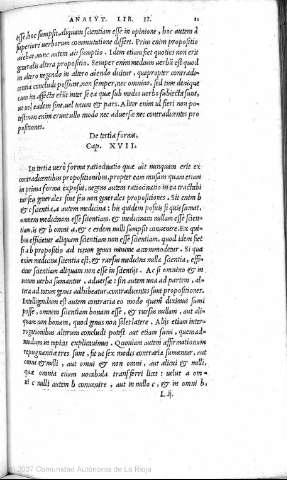 ANALYT. LIB. II.
esse, hoc sumpsit, aliquam scientiam esse in opinione, hoc autem à
superiori verborum commutatione differt. Prius enim propositio
nunc autem ait sumptio. Idem etiam fiet quoties non erit
generalis altera propositio. Semper enim medium verbū est quod
in altero negando in altero aiendo dicitur, quapropter contradi-
centia concludi possunt, non semper, nec omnino, sed tum denique
cum ita affecta erūt inter se ea quæ sub medio verbo subiecta sunt,
ut vel eadem sint, vel totum & pars. Aliter enim id fieri non po-
test: non enim erunt ullo modo nec adversæ nec contradicentes pro
positiones.
De tertia forma.
Cap. XVII.
In tertia verò forma ratiocinatio quæ ait nunquam erit ex
contradicentibus propositionibus, propter eam causam quam etiam
in prima forma exposui, negans autem ratiocinatio in ea tractabi
tur sea generales sint seu non generales propositiones. Sit enim b
& c scientia, a autem medicina: his quidem positis si quis sumat,
omnem medicinam esse scientiam, & medicinam nullam esse scien-
tiam, is & b omni a, & c eidem nulli sumpsit convenire. Ex qui-
bus efficietur aliquam scientiam non esse scientiam. quod idem fiet
si a b propositio ad totum genus minime accommodetur. Si quæ
enim medicina scientia est, & rursus medicina nulla scientia, effici-
tur scientiam aliquam non esse in scientiis. Ac si omnino & in
totum verba sumantur, adversæ: sin autem una ad partem, al-
tera ad totum genus adhibeatur, contradicentes sunt propositiones.
Intelligendum est autem contraria eo modo quem diximus sumi
posse, omnem scientiam bonam esse, & rursus nullam, aut ali-
quam non bonam, quod genus non solet latere. Aliis etiam inter-
rogationibus alterum concludi potest aut etiam sumi, quemad-
modum in topicis explicavimus. Quoniam autem affirmationum
repugnantiæ tres sunt, fit ut sex modis contraria sumantur, aut
omni & nulli, aut omni & non omni, aut alicui & nulli,
quæ omnia etiam vocabula transferri licet: velut a om-
ni c nulli autem b convenire, aut in nullo c, & in omni b,
L ij.
© 2007 Comunidad Autónoma de La Rioja